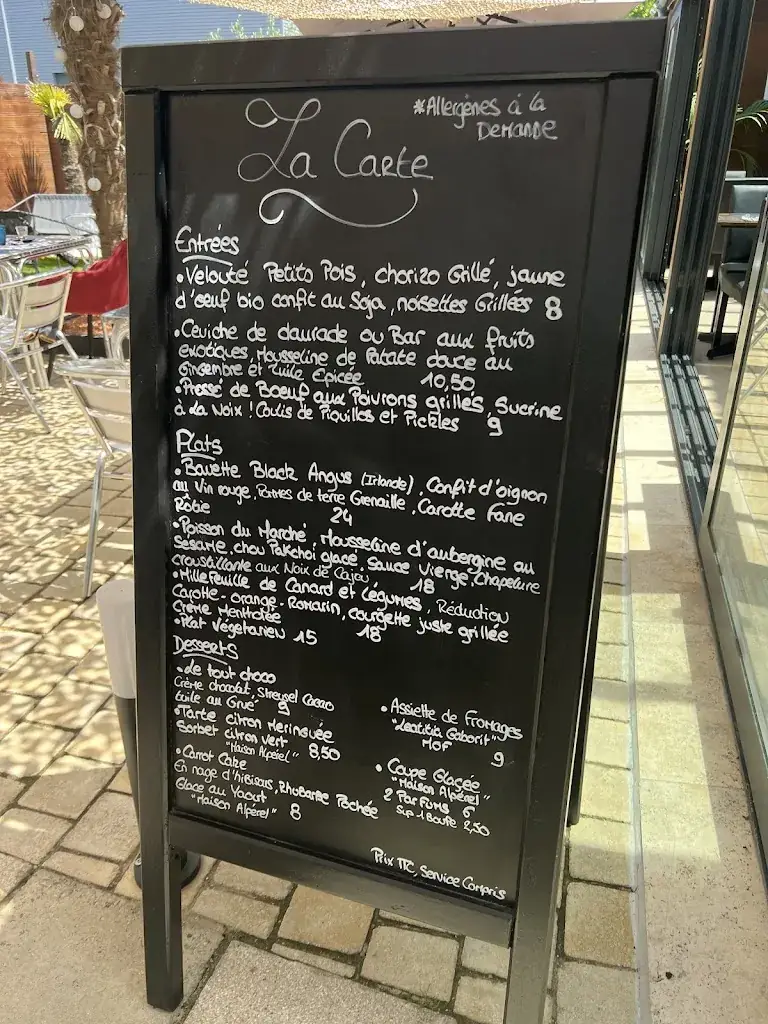 La Carte
*Allergènes à la
Demande
Entrées
• Velouté Petits Pois, chorizo Grillé, jaune
d'oeuf bio confit au Soja, noisettes Grillées 8
• Ceviche de daurade ou Bar aux fruits
exotiques, Mousseline de Patate douce au
Gingembre et Tuile Epicée 10,50
• Pressé de Boeuf aux Poivrons grillés, Sucrine
à la Noix ! Coulis de Piquillos et Pickles 9
Plats
• Bavette Black Angus (Irlande), Confit d'oignon
au Vin rouge, Pommes de terre Grenaille, Carotte Fane
Rôtie 24
• Poisson du Marché, Mousseline d'aubergine au
Sesame, chou Pakchoi glacé, Sauce Vierge, Chapelure
croustillante aux Noix de Cajou, 18
• Mille Feuille de Canard et Légumes, Réduction
Carotte-orange-Romarin, courgette juste grillée
Crème Mentholée 18
• Plat Végétarien 15
Desserts
• Le tout choco
Crème chocolat, Streusel Cacao
tuile au Grué 9
• Tarte citron Meringuée
Sorbet citron vert
"Maison Alpérel" 8,50
• Carrot Cake
En nage d'hibiscus, Rhubarbe Pochée
Glace au Yaourt
"Maison Alpérel" 8
• Assiette de Fromages
"Laetitia Gaborit"
MOF 9
• Coupe Glacée
"Maison Alpérel"
2 Parfums 6
Sup 1 Boule 2,50
Prix TTC, Service Compris